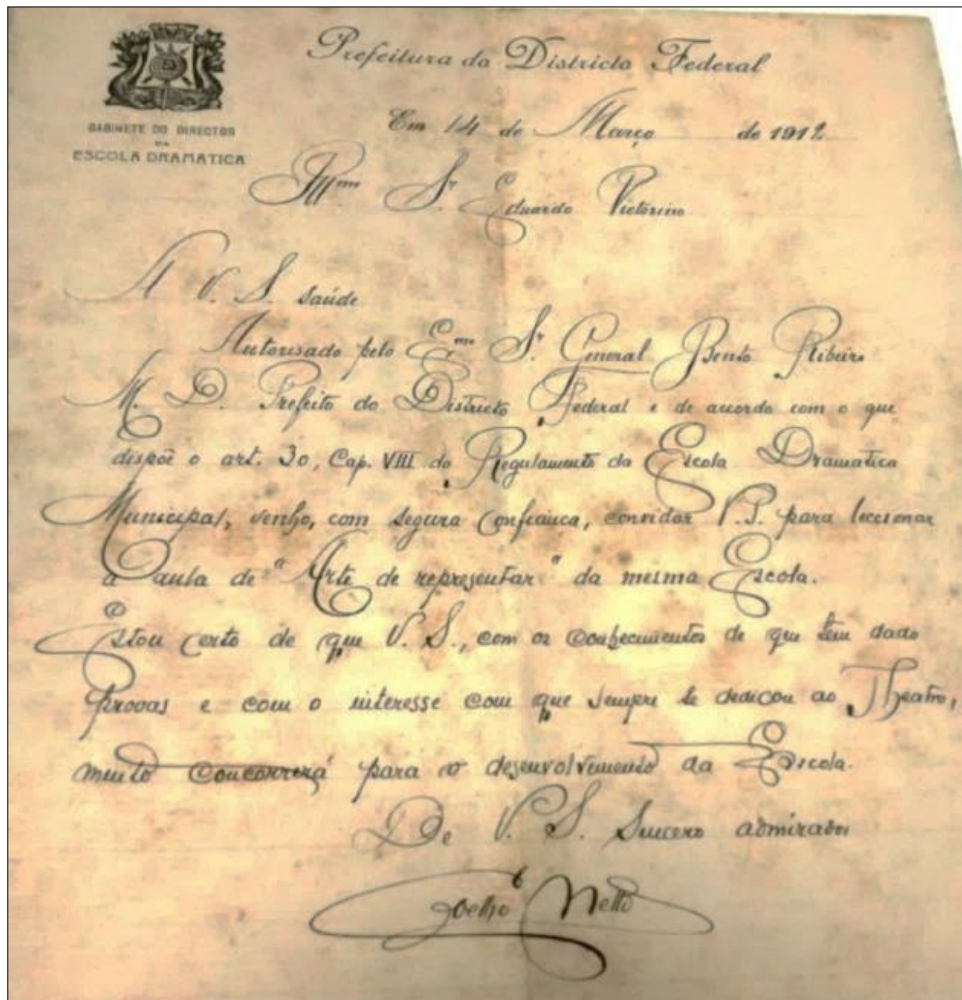 Prefeitura do Districto Federal
GABINETE DO DIRECTOR
DA
ESCOLA DRAMATICA
Em 14 de Março de 1912
Illmo Sr Eduardo Victorino
A V. S. saúde
Autorisado pelo Exmo Sr General Bento Ribeiro
M. D. Prefeito do Districto Federal e de accordo com o que
dispõe o art. 30, Cap. VIII do Regulamento da Escola Dramatica
Municipal, venho, com segura confiança, convidar V. S. para leccionar
a aula de "Arte de representar" da mesma Escola.
Estou certo de que V. S., com os conhecimentos de que tem dado
provas e com o interesse com que sempre se dedicou ao Theatro,
muito concorrerá para o desenvolvimento da Escola.
De V. S. sincero admirador
Coelho Netto